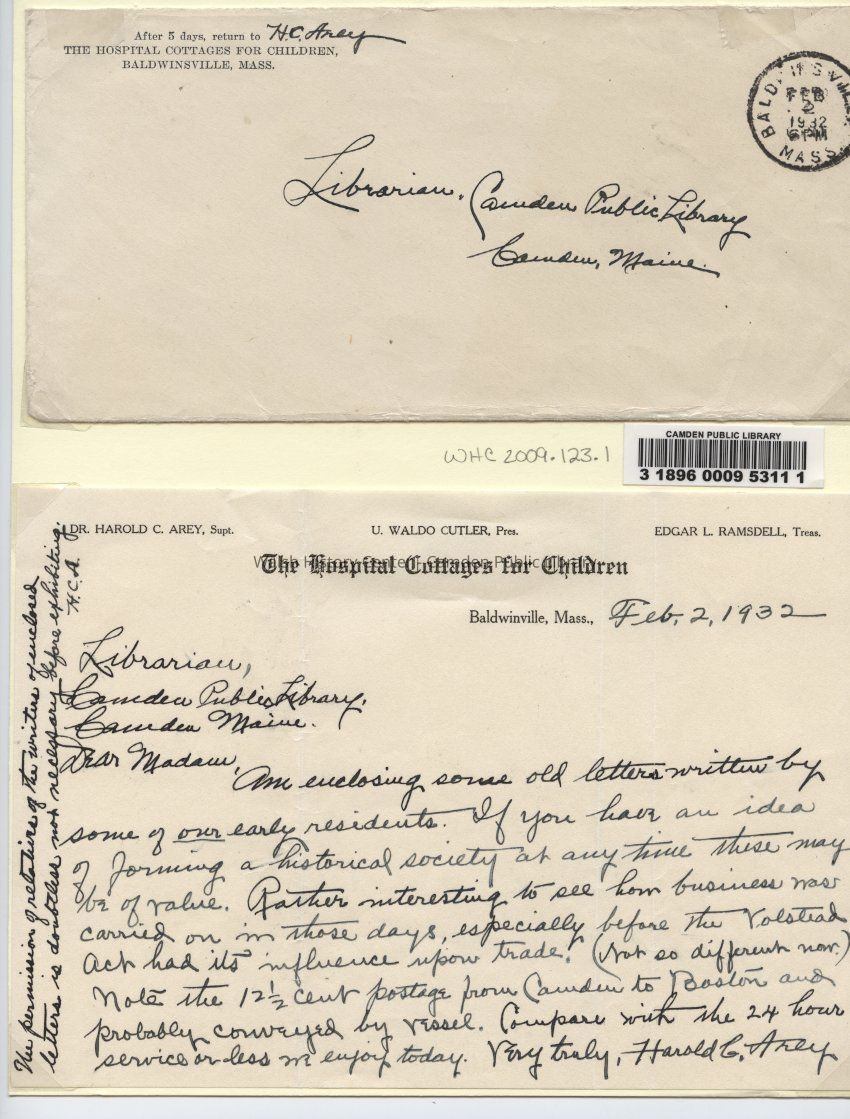 After 5 days, return to H.C. Arey
THE HOSPITAL COTTAGES FOR CHILDREN,
BALDWINSVILLE, MASS.
BALDWINSVILLE
FEB
2
1932
6 PM
MASS.
Librarian, Camden Public Library
Camden, Maine.
WHC 2009.123.1
CAMDEN PUBLIC LIBRARY
3 1896 0009 5311 1
DR. HAROLD C. AREY, Supt. U. WALDO CUTLER, Pres. EDGAR L. RAMSDELL, Treas.
The Hospital Cottages for Children
Walsh History Center, Camden Public Library
Baldwinville, Mass., Feb. 2, 1932
Librarian,
Camden Public Library.
Camden Maine.
Dear Madam,
Am enclosing some old letters written by
some of our early residents. If you have an idea
of forming a historical society at any time these may
be of value. Rather interesting to see how business was
carried on in those days, especially before the Volstead
Act had its influence upon trade. (Not so different now.)
Note the 12½ cent postage from Camden to Boston and
probably conveyed by vessel. Compare with the 24 hour
service or less we enjoy today. Very truly, Harold C. Arey
The permission of relatives of the writers of enclosed
letters is doubtless not necessary before exhibiting.
H.C.A.